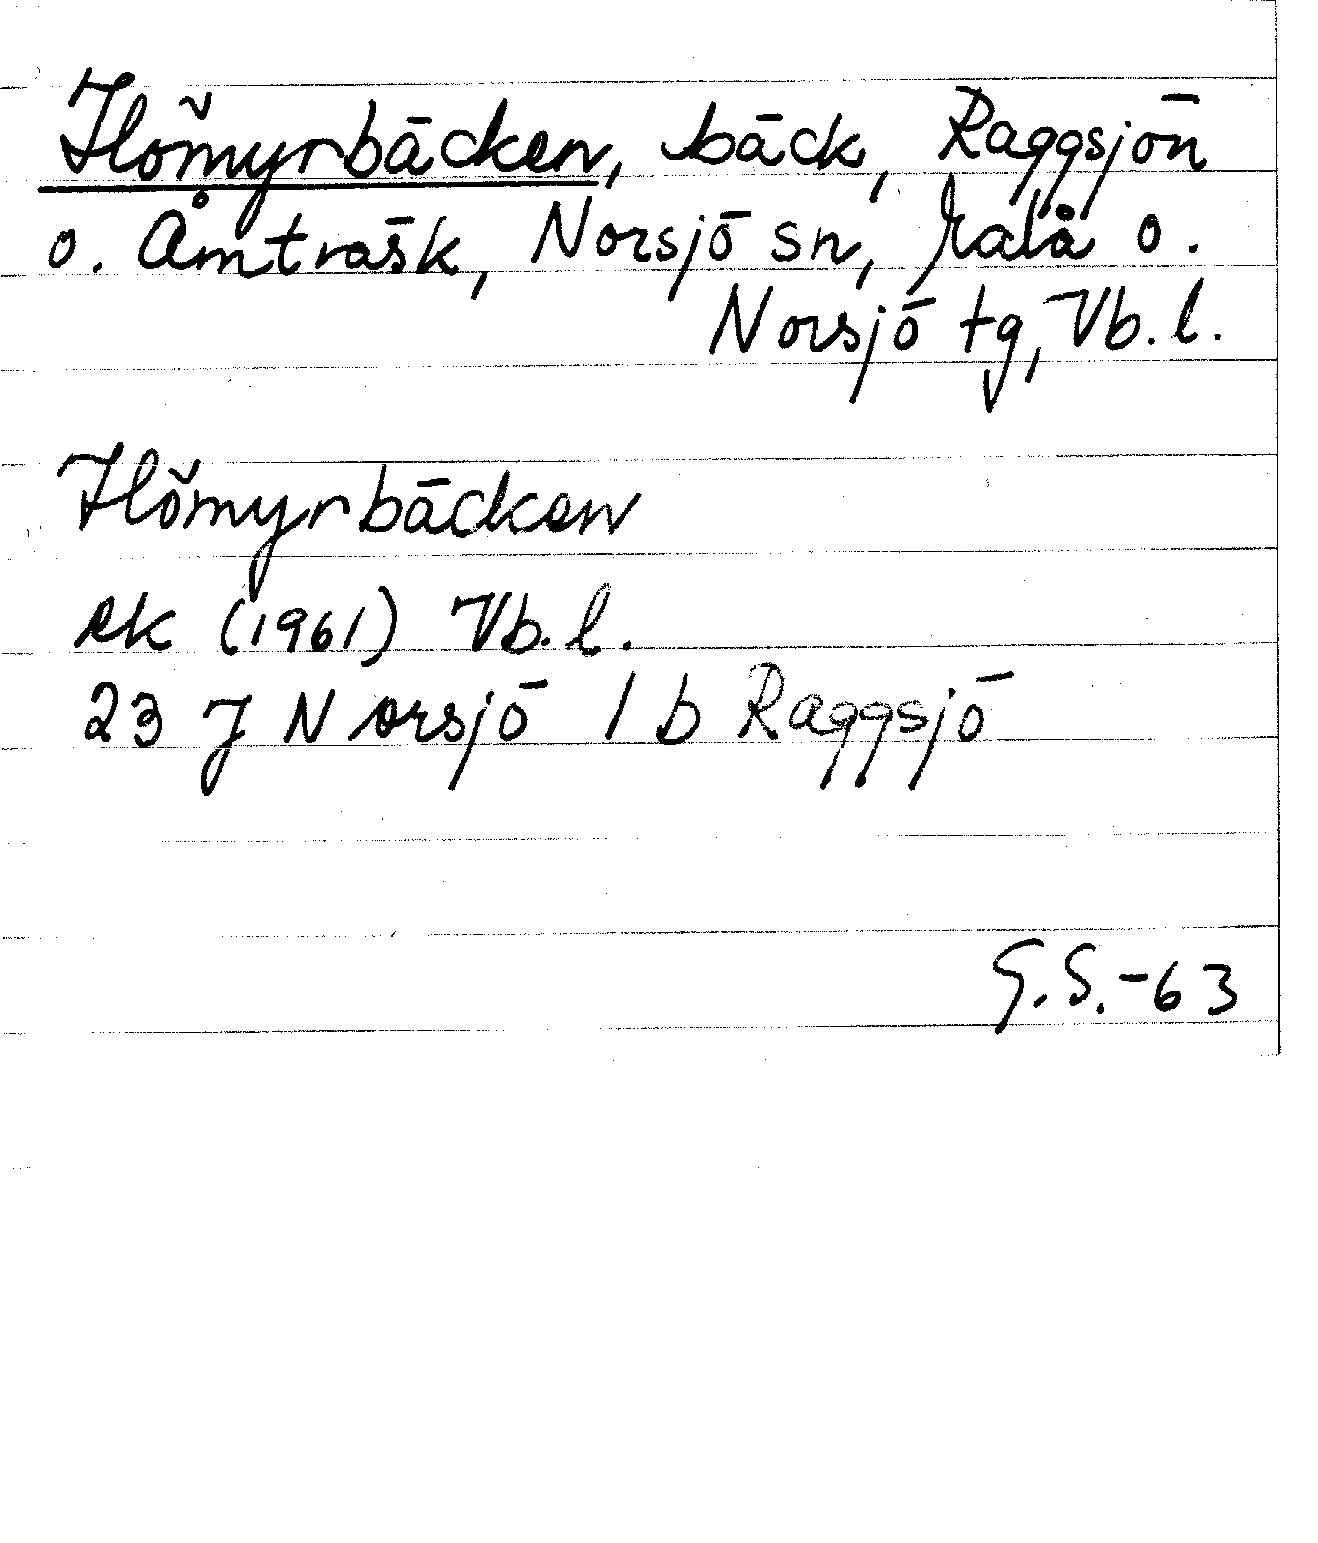 Flömyrbäcken, bäck, Raggsjön
o. Åmträsk, Norsjö sn, Malå o.
Norsjö tg, Vb. l.
Flömyrbäcken
ek (1961) Vb. l.
23 J Norsjö 1 b Raggsjö
G.S.-63